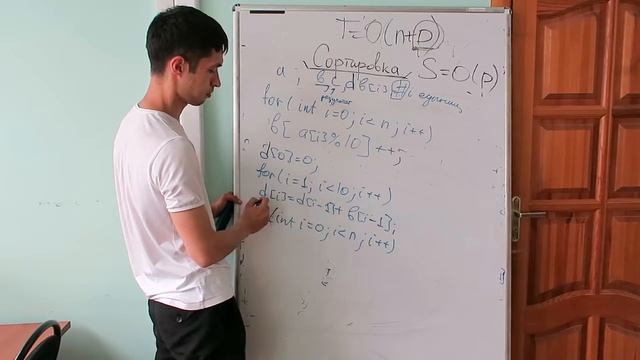 T=O(n+p)
Сортировка S=O(p)
a b, c, d b[i] # i единиц
результат
for(int i=0; i<n; i++)
b[a[i]%10]++;
d[0]=0;
for(i=1; i<10; i++)
d[i]=d[i-1]+b[i-1];
(int i=0; i<n; i++)